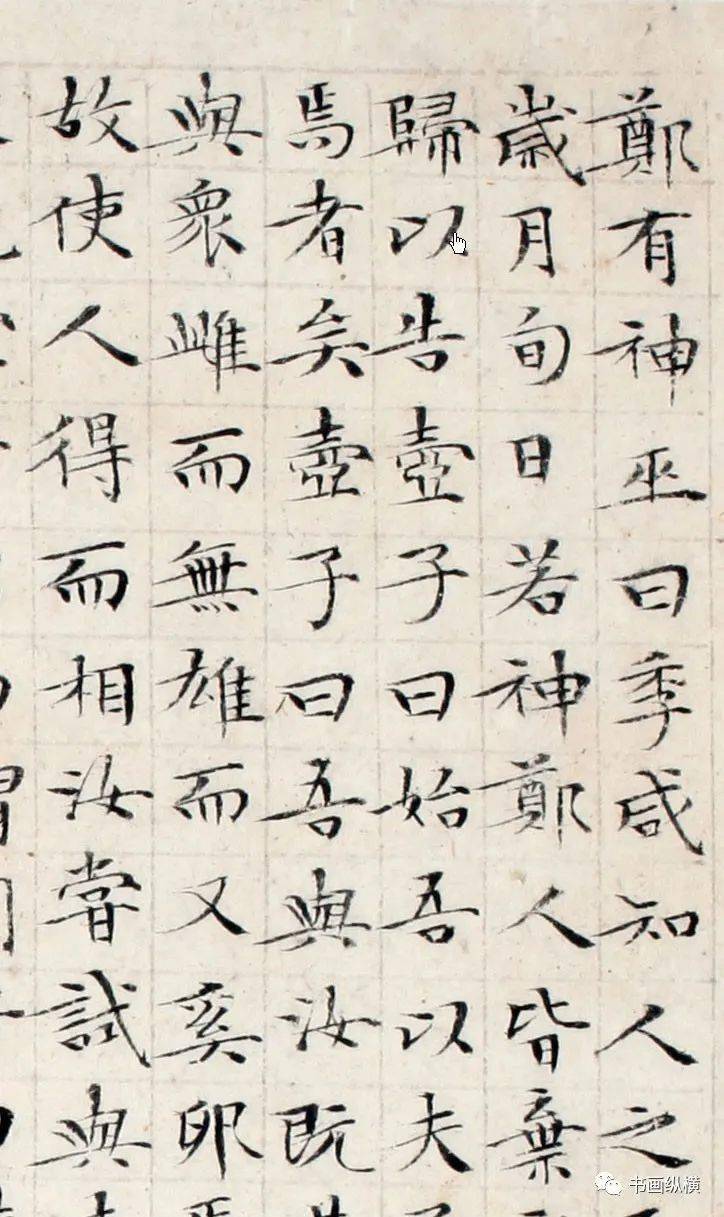 鄭有神巫曰季咸知人之
歲月旬日若神鄭人皆棄
歸以告壺子曰始吾以夫
焉者矣壺子曰吾與汝既
與衆雌而無雄而又奚卵
故使人得而相汝嘗試與
书画纵横